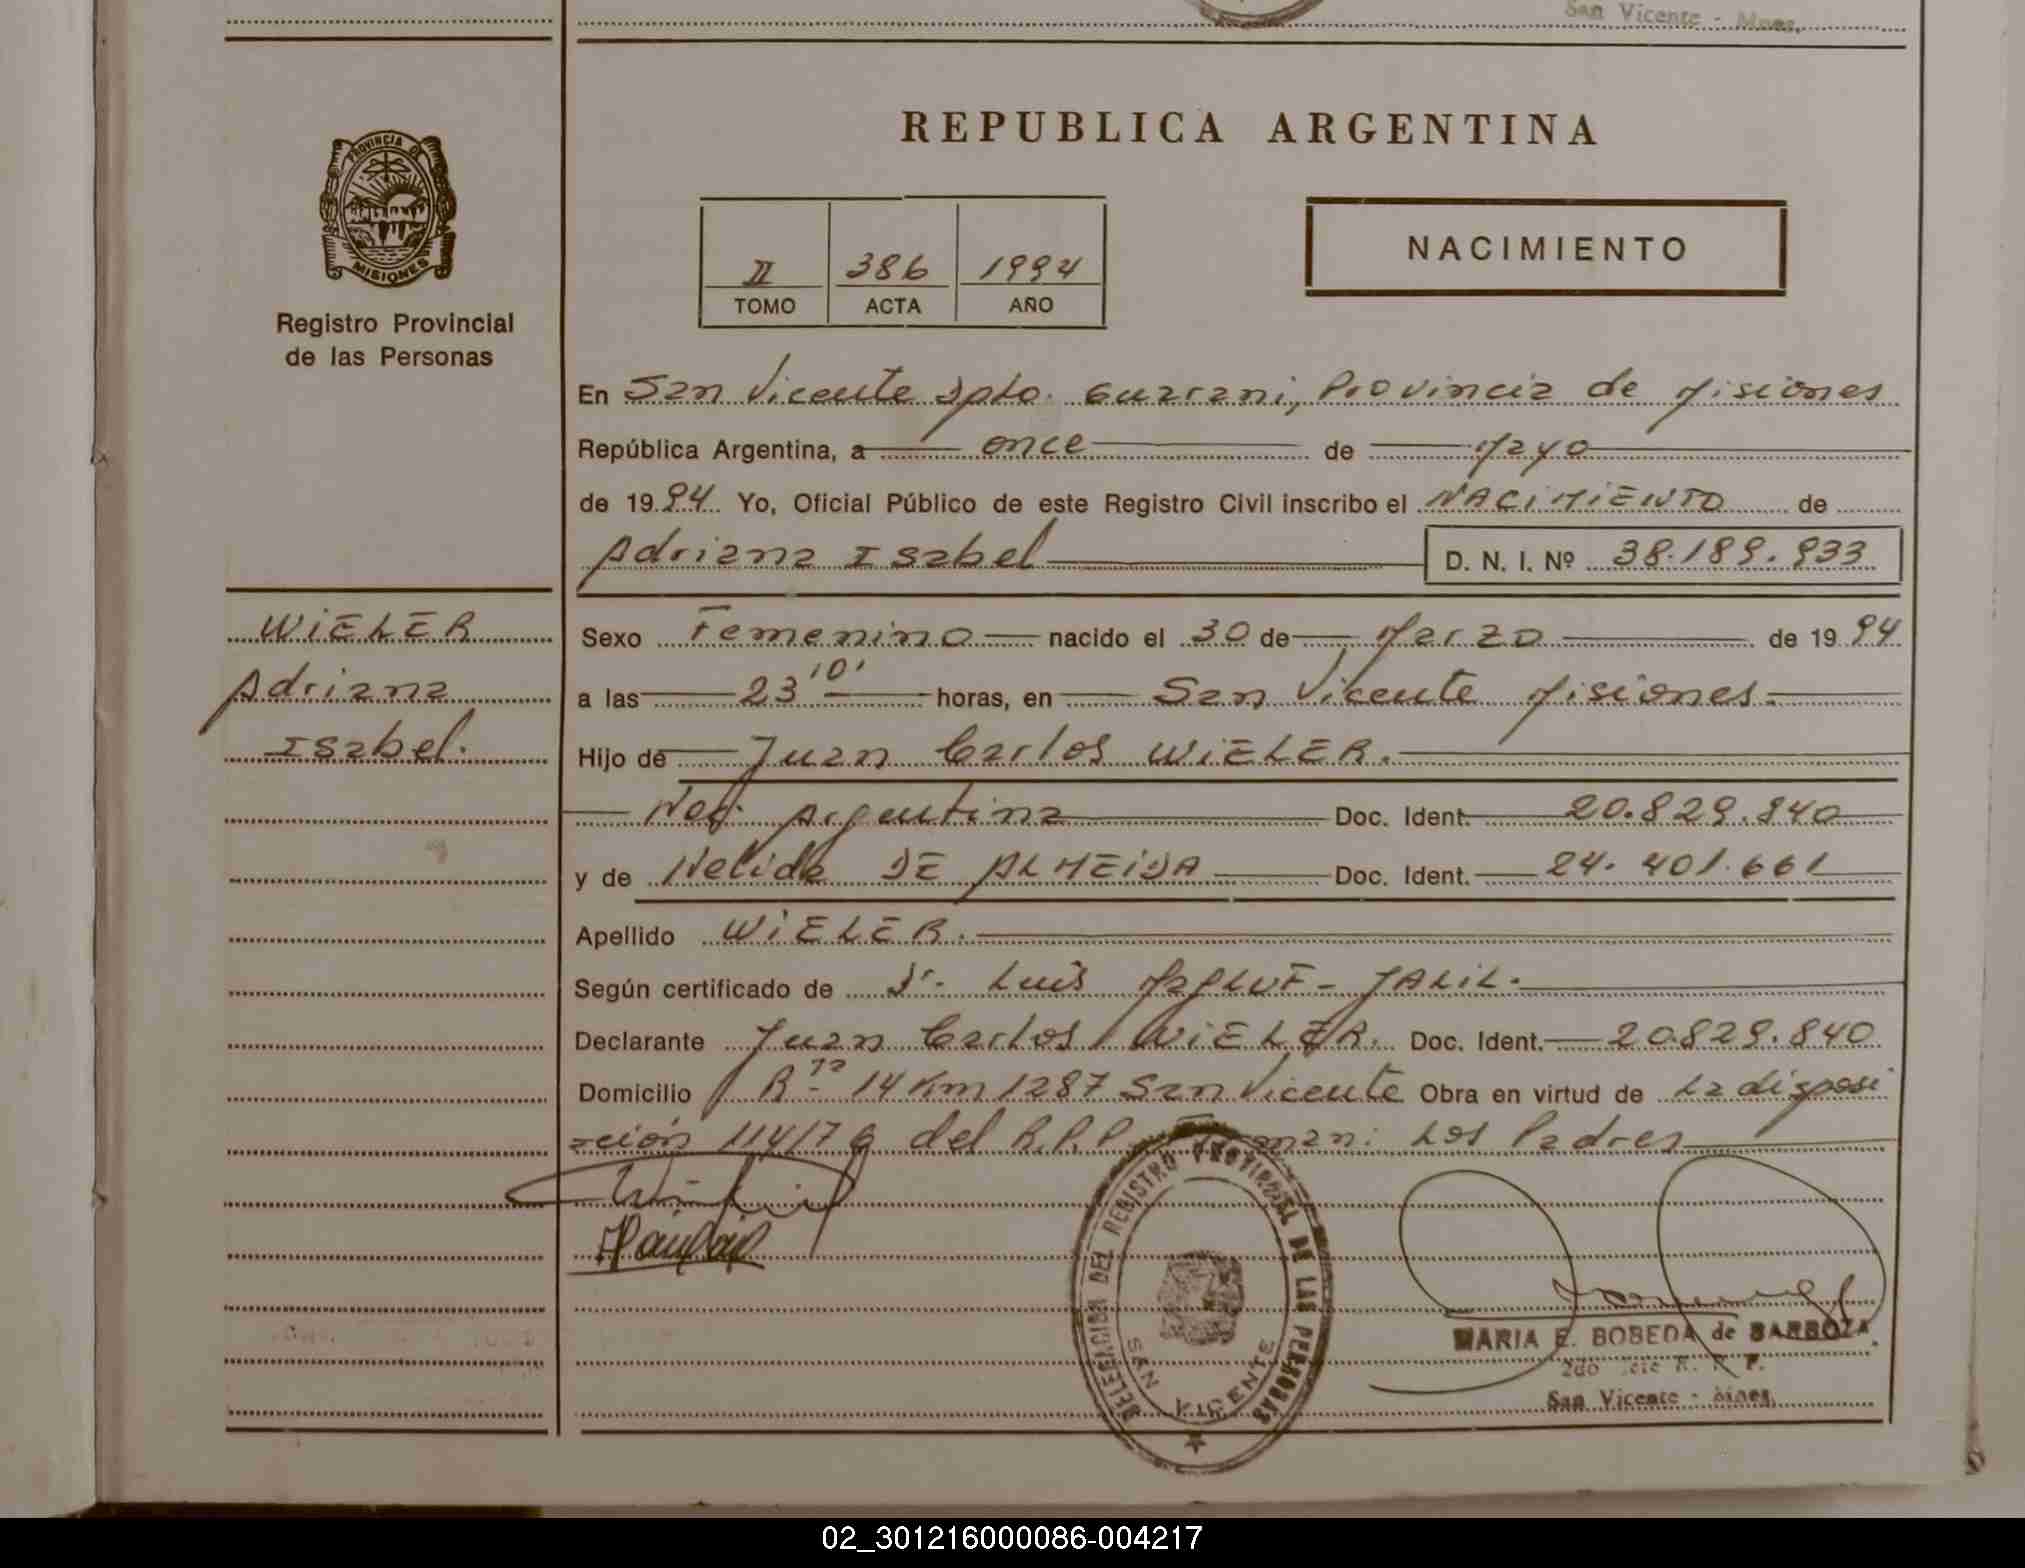 San Vicente - Mnes.
REPUBLICA ARGENTINA
PROVINCIA DE
MISIONES
Registro Provincial
de las Personas
II 386 1994
TOMO ACTA AÑO
NACIMIENTO
En San Vicente Dpto. Guarani, Provincia de Misiones
República Argentina, a once de Mayo
de 1994 Yo, Oficial Público de este Registro Civil inscribo el NACIMIENTO de
Adriana Isabel D. N. I. Nº 38.189.933
WIELER
Adriana
Isabel.
Sexo Femenino nacido el 30 de Marzo de 1994
a las 23 10' horas, en San Vicente Misiones.
Hijo de Juan Carlos WIELER.
Nac. Argentina Doc. Ident. 20.829.840
y de Nelida DE ALMEIDA Doc. Ident. 24.401.661
Apellido WIELER.
Según certificado de Dr. Luis JALIL.
Declarante Juan Carlos WIELER. Doc. Ident. 20.829.840
Domicilio R.ta 14 Km 1287 San Vicente Obra en virtud de La disposi
-ción 114/79 del R.P.P. Firman: Los Padres
DELEGACION DEL REGISTRO PROVINCIAL DE LAS PERSONAS
SAN VICENTE
MARIA E. BOBEDA de BARBOZA
2do Jefe R. P. P.
San Vicente - Mnes.
02_301216000086-004217